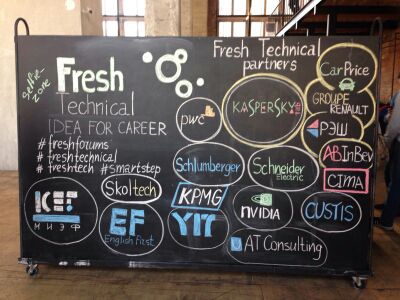 Selfie-
zone
Fresh
Technical
IDEA FOR CAREER
#freshforums
#freshtechnical
#freshtech #smartstep
Fresh Technical
partners
CarPrice
pwc
KASPERSKY
GROUPE
RENAULT
РЭШ
ABInBev
CIMA
Schlumberger
Schneider
Electric
Skoltech
KPMG
ICEF
МИЭФ
EF
English First
YIT
NVIDIA
CUSTIS
AT Consulting